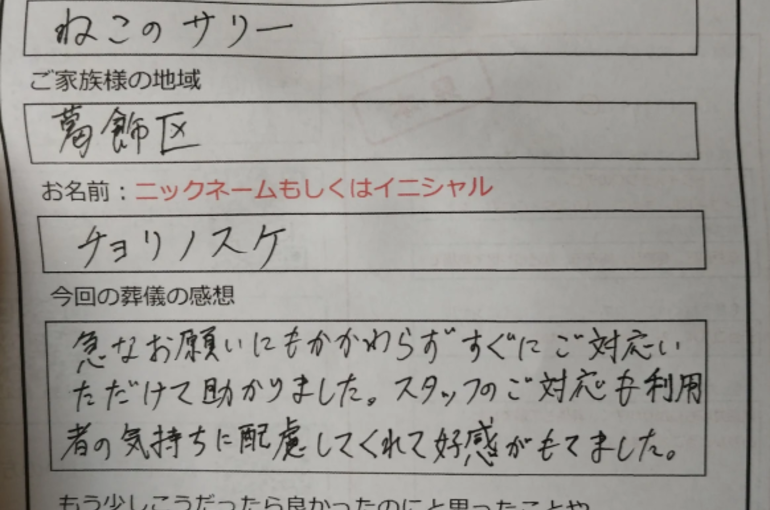 ねこのサリー
ご家族様の地域
葛飾区
お名前：ニックネームもしくはイニシャル
チョリノスケ
今回の葬儀の感想
急なお願いにもかかわらずすぐにご対応い
ただけて助かりました。スタッフのご対応も利用
者の気持ちに配慮してくれて好感がもてました。
もう少しこうだったら良かったのにと思ったことや